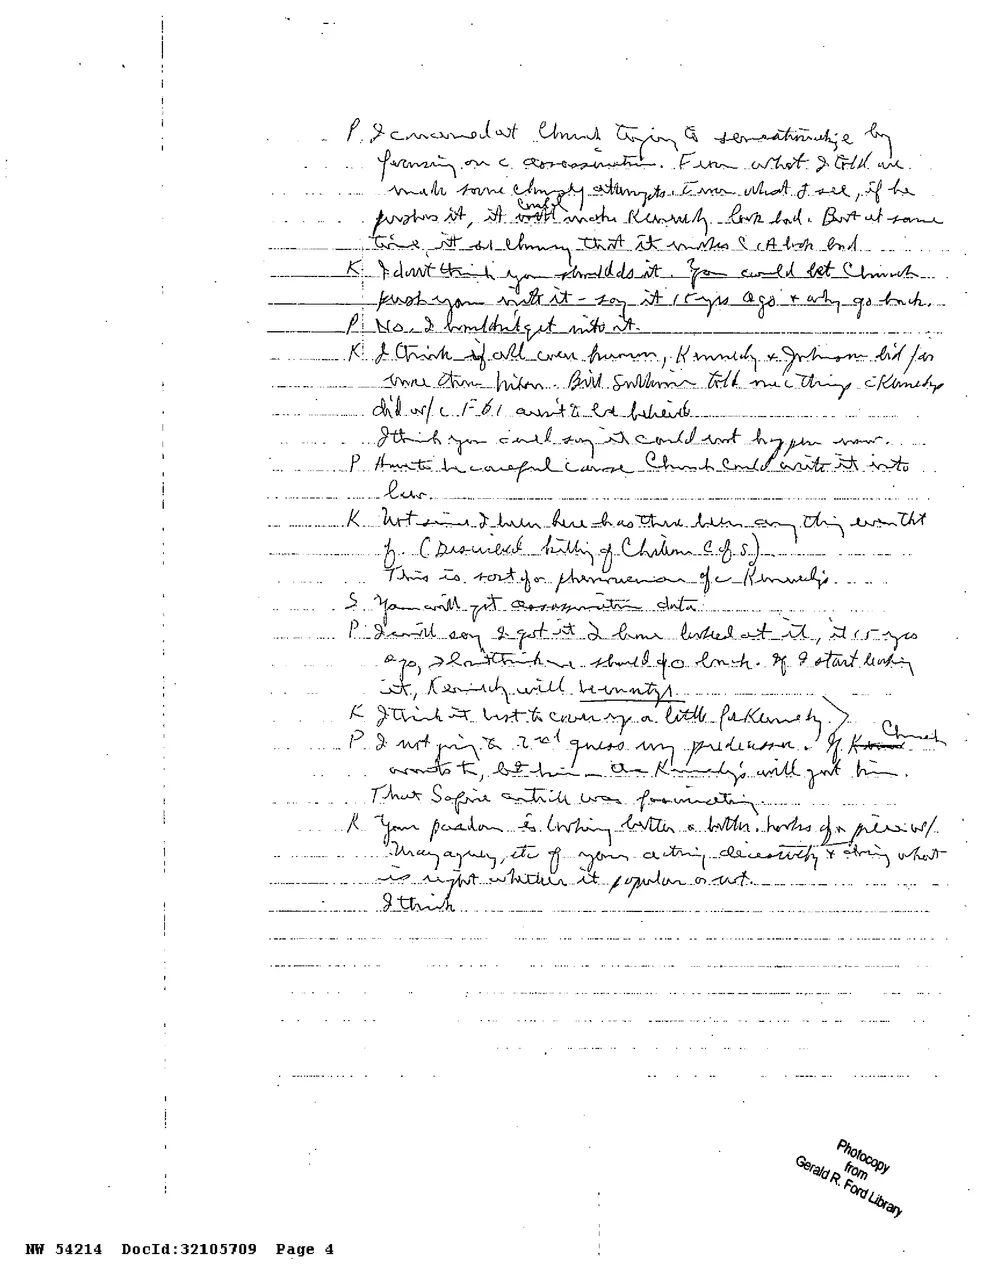 P. I concerned at Church trying to sensationalize by
focusing on assassination. From what I told we
made some attempts. From what I see, if he
pushes it, it could make Kennedy look bad. But at same
time it that it makes CIA look bad
K I don't think you should do it. You could let Church
push you into it - say it 15 yrs ago & why go back.
P No. I wouldn't get into it.
K I think if all comes , Kennedy & Johnson
more than Nixon. Bill Sullivan told me things Kennedys
did w/ FBI to be believed
I think you could say it could not happen now.
P Have to be careful cause Church could write it into
law.
K Not since I been here has there been anything even tht
of. (Described killing of Chilean C of S)
This is sort of a phenomenon of Kennedys.
S. You will get assassination data.
P. I will say I got it I have looked at it, it 15 yrs
ago, I don't think we should go back. If I start leaking
it, Kennedy will be nuts.
K I think it best to cover up a little for Kennedy
P I not going to 2nd guess my predecessor. If Church
wants to, let him - Kennedy's will get him.
That Safire article was fascinating.
K Your is looking better & better. of a piece w/
Mayaguez, etc of your acting decisively & doing what
is right whether it popular or not.
I think
Photocopy
from
Gerald R. Ford Library
NW 54214 DocId:32105709 Page 4